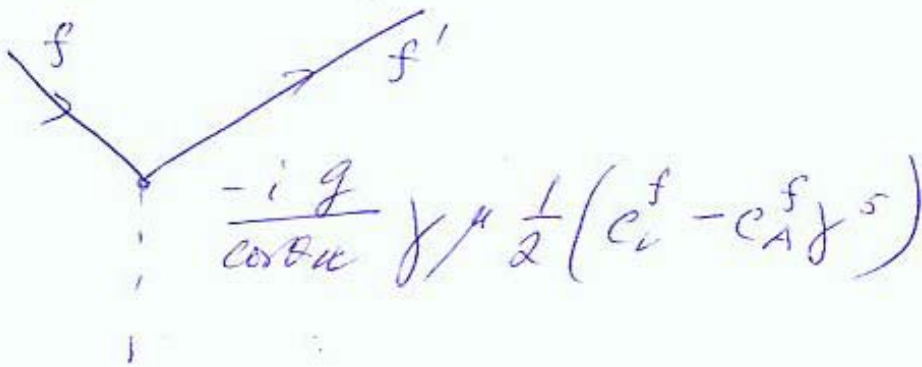 f
f'
\frac{-ig}{\cos\theta_W} \gamma^\mu \frac{1}{2} (c_V^f - c_A^f \gamma^5)